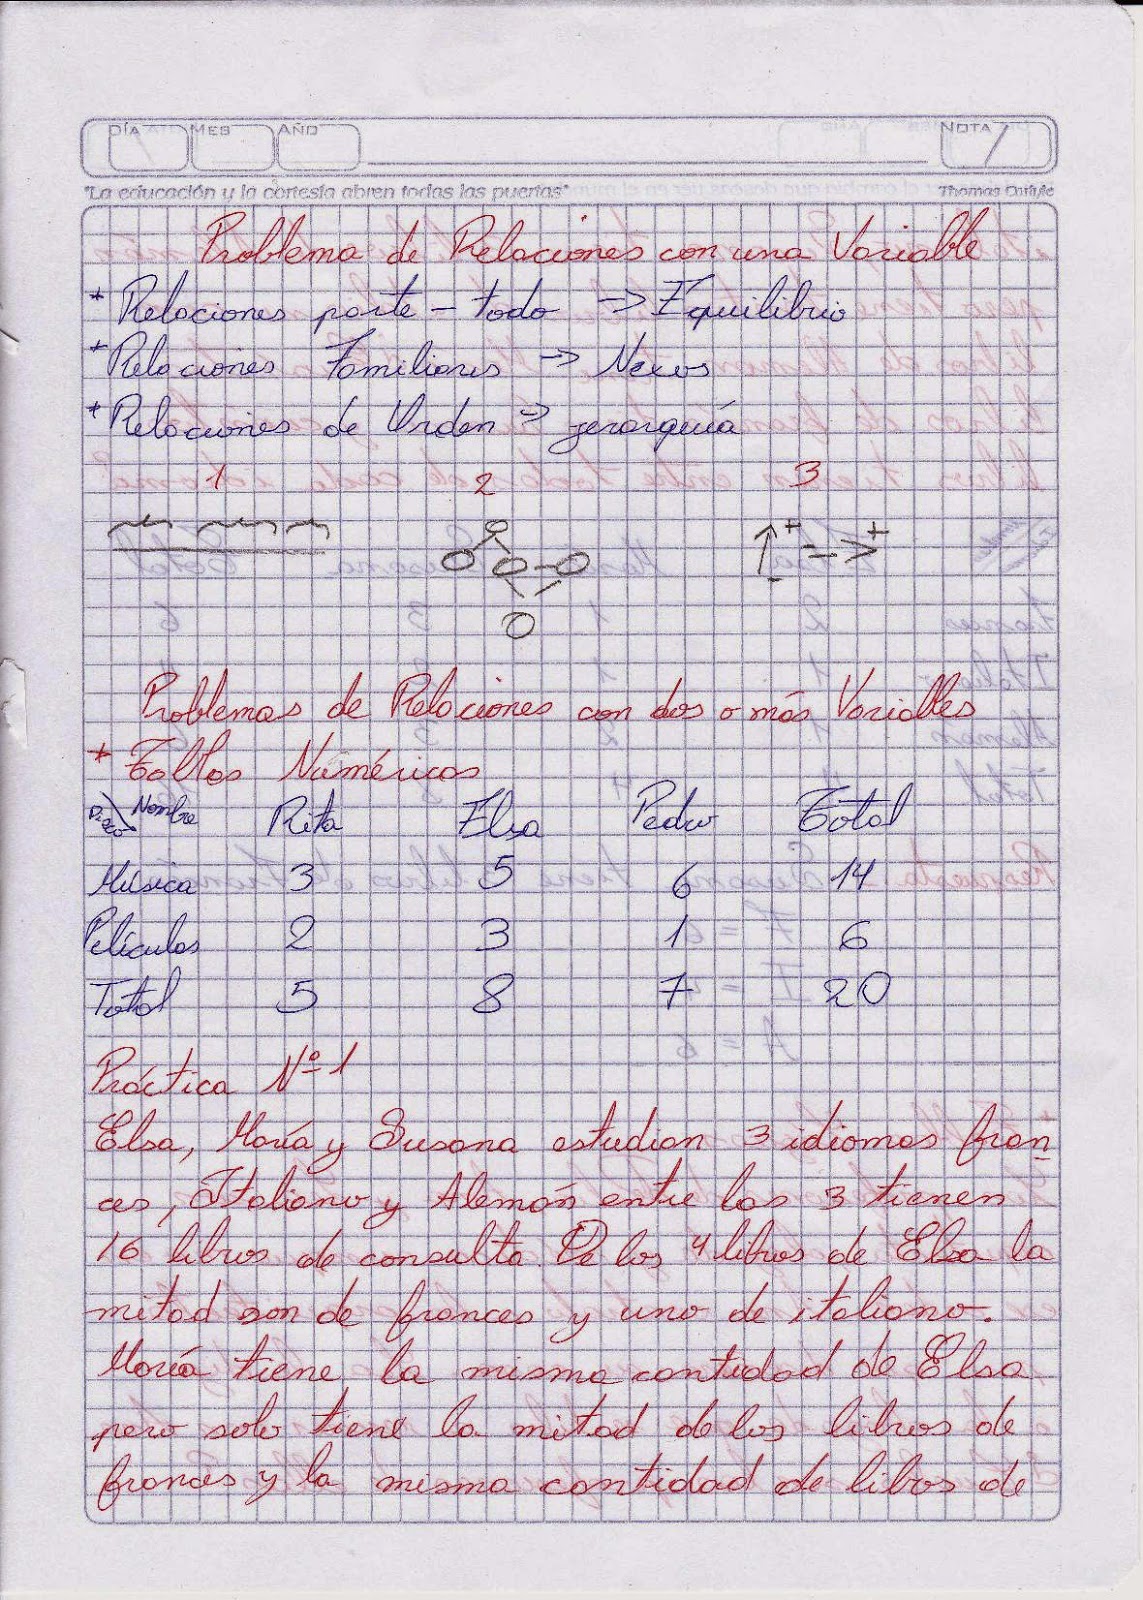 DÍA MES AÑO NOTA
"La educación y la cortesía abren todas las puertas" Thomas Carlyle
Problema de Relaciones con una Variable
* Relaciones parte - todo -> Equilibrio
* Relaciones Familiares -> Nexos
* Relaciones de Orden -> jerarquía
1 2 3
+ - = - > +
Problemas de Relaciones con dos o más Variables
* Tablas Numéricas
Nombre Rita Elsa Pedro Total
Música 3 5 6 14
Películas 2 3 1 6
Total 5 8 7 20
Práctica Nº 1
Elsa, María y Susana estudian 3 idiomas fran
ces, Italiano y Alemán entre las 3 tienen
16 libros de consulta. De los 4 libros de Elsa la
mitad son de frances y uno de italiano.
María tiene la misma cantidad de Elsa
pero solo tiene la mitad de los libros de
frances y la misma cantidad de libros de